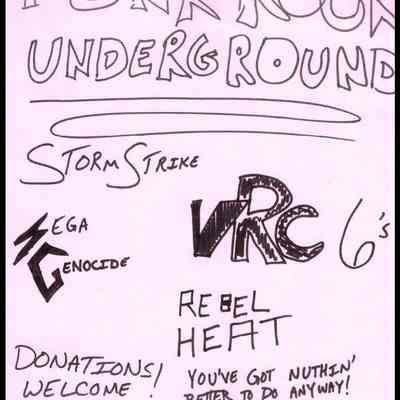 PUNK ROCK
UNDERGROUND
STORM STRIKE
MEGA
GENOCIDE
VRC 6's
REBEL
HEAT
DONATIONS!
WELCOME!
YOU'VE GOT NUTHIN'
BETTER TO DO ANYWAY!